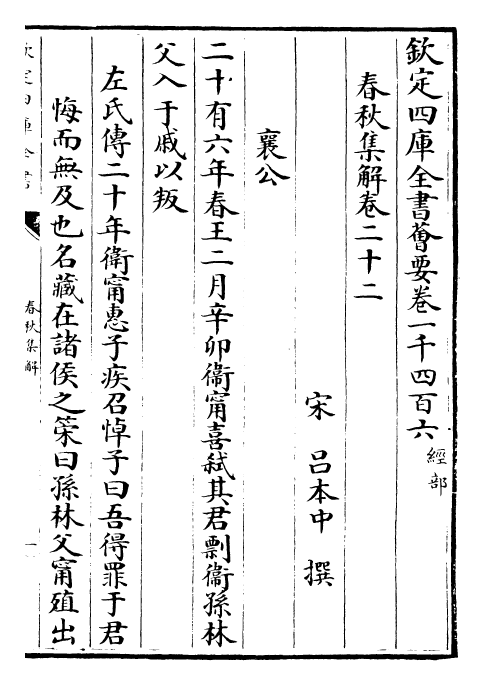 欽定四庫全書薈要卷一千四百六 經部
春秋集解卷二十二
宋 呂本中 撰
襄公
二十有六年春王二月辛卯衞甯喜弑其君剽衞孫林
父入于戚以叛
左氏傳二十年衞甯惠子疾召悼子曰吾得罪于君
悔而無及也名藏在諸侯之策曰孫林父甯殖出
欽定四庫全書
春秋集解
一